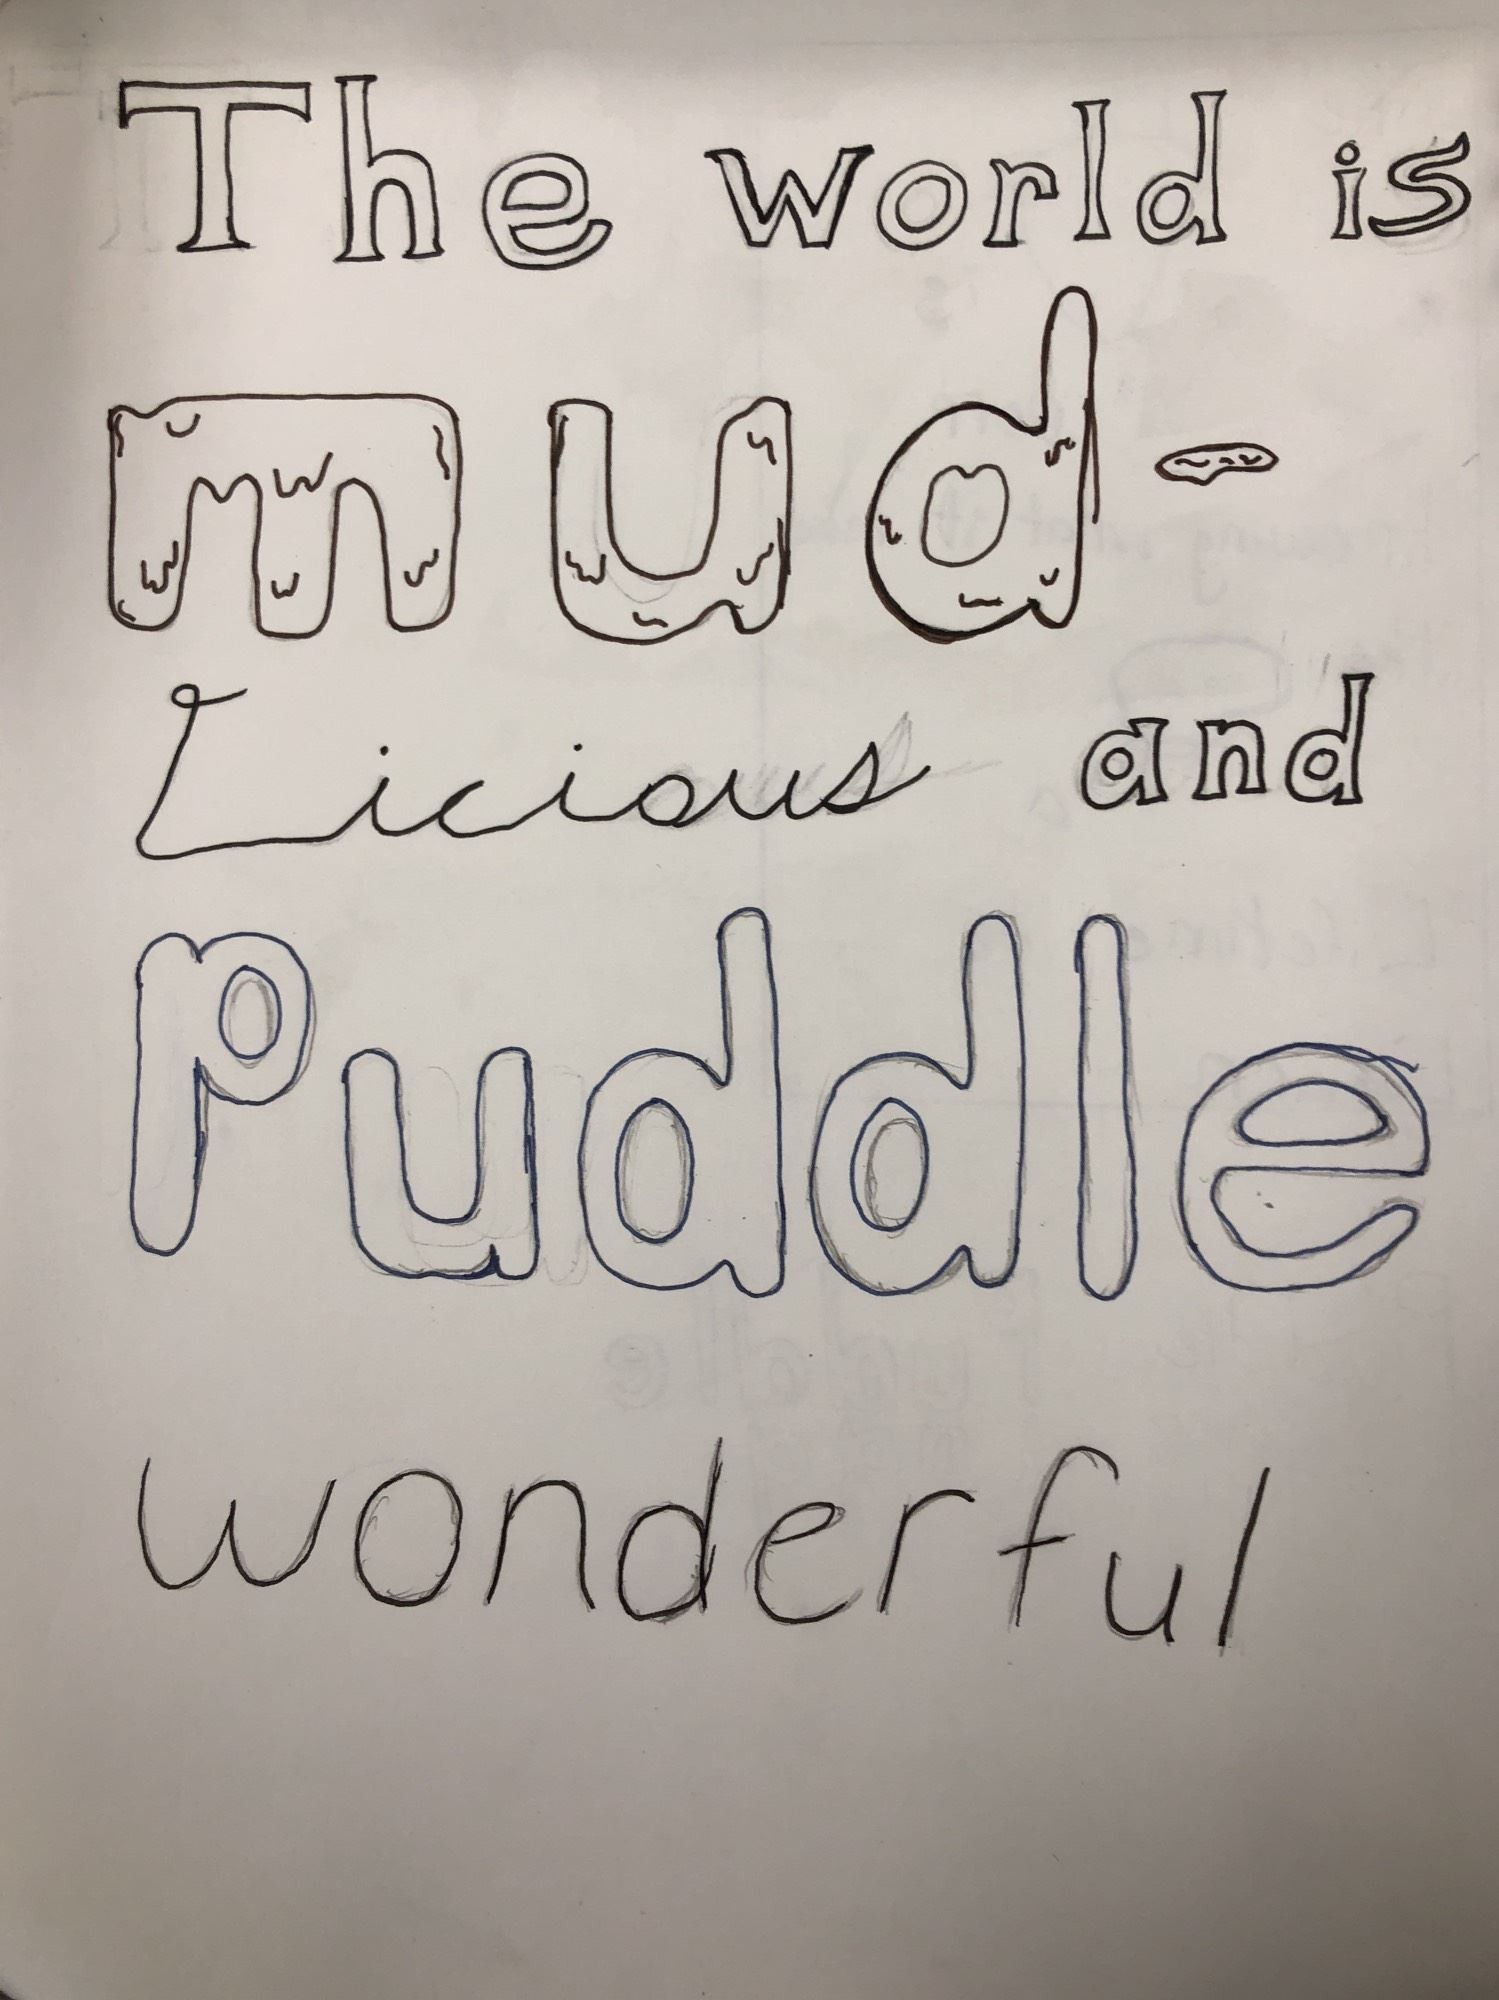 The world is
mud-
Licious and
Puddle
wonderful